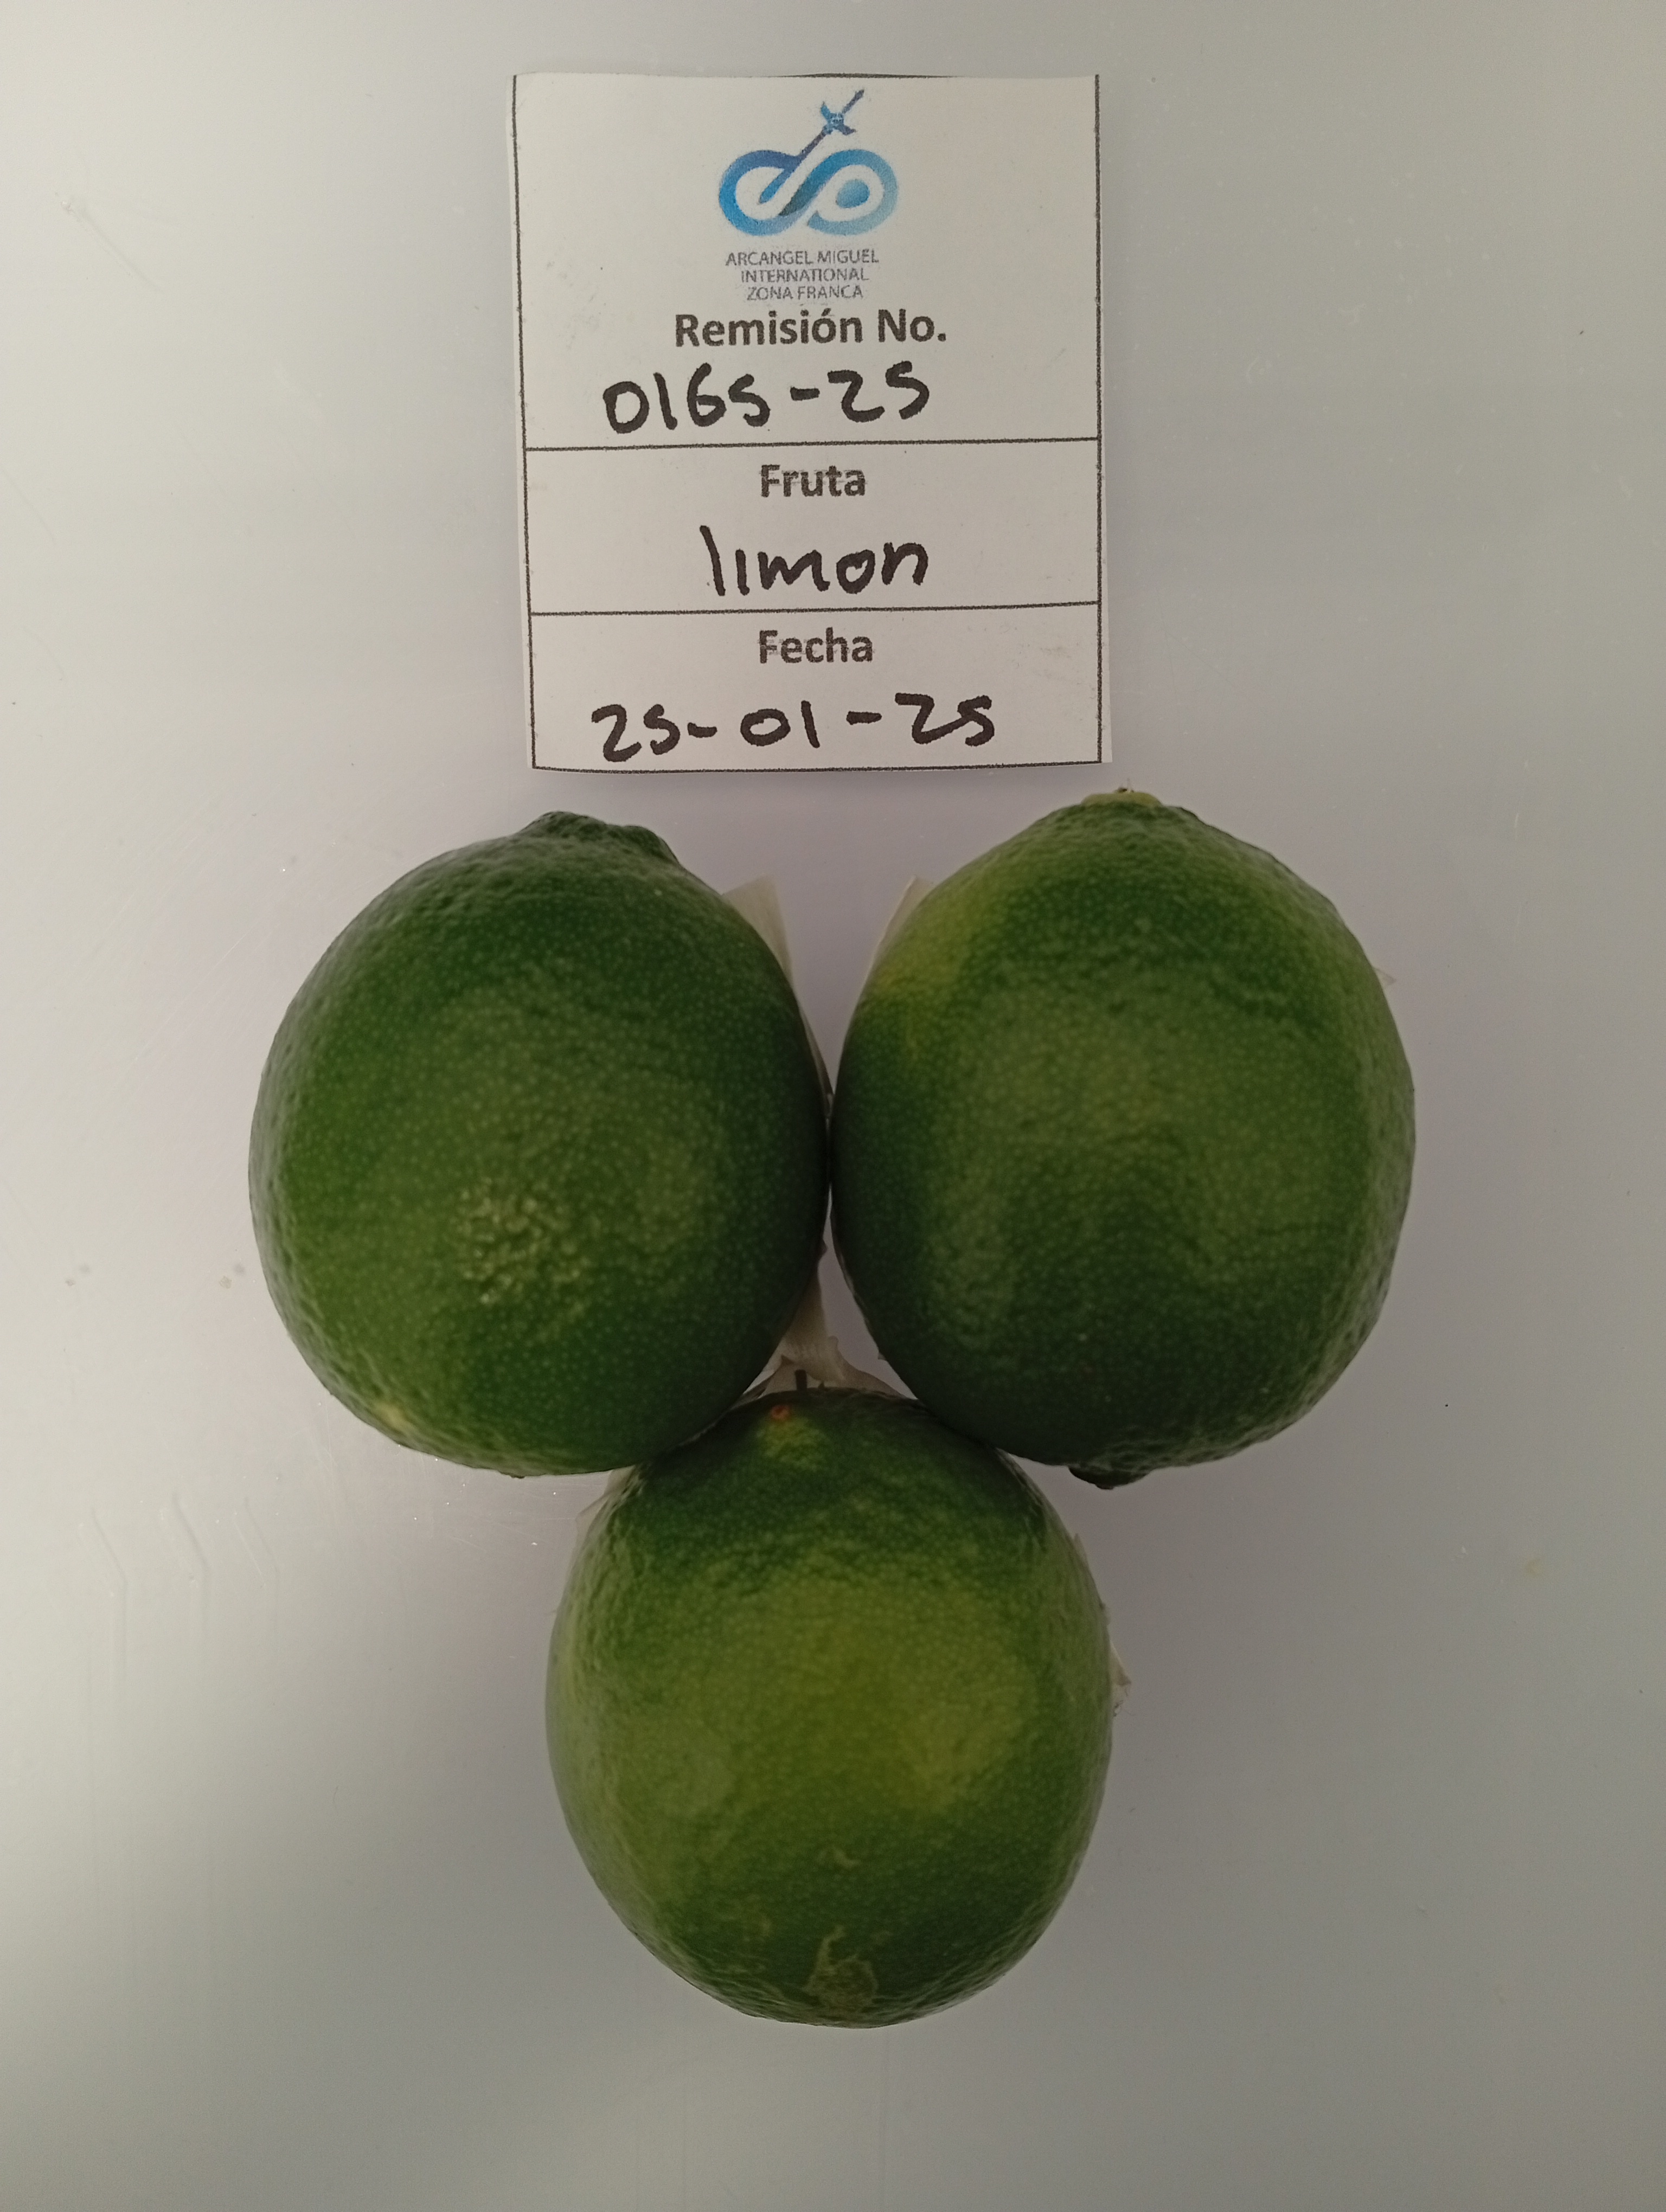 ARCANGEL MIGUEL
INTERNATIONAL
ZONA FRANCA
Remisión No.
0165-25
Fruta
limon
Fecha
25-01-25